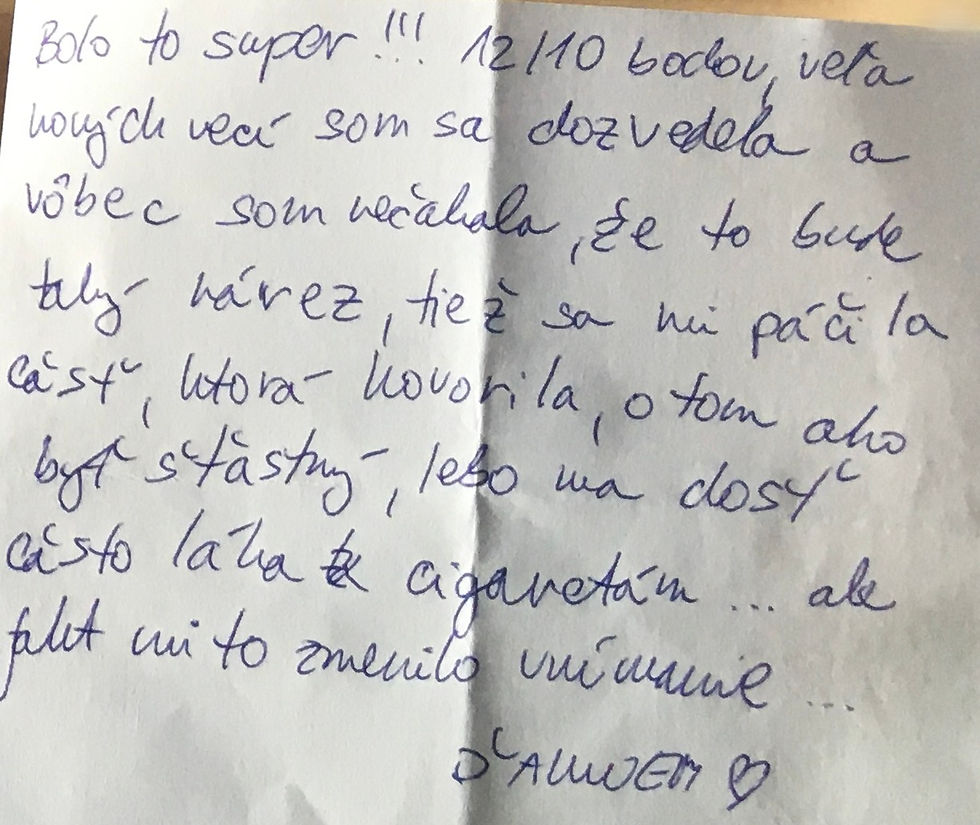 Bolo to super!!! 12/10 bodov, veľa
nových vecí som sa dozvedela a
vôbec som nečakala, že to bude
taký nárez, tiež sa mi páčila
časť, ktorá hovorila, o tom ako
byť šťastný, lebo ma dosť
často láka k cigaretám ... ale
fakt mi to zmenilo vnímanie ...
ĎAKUJEM ♡